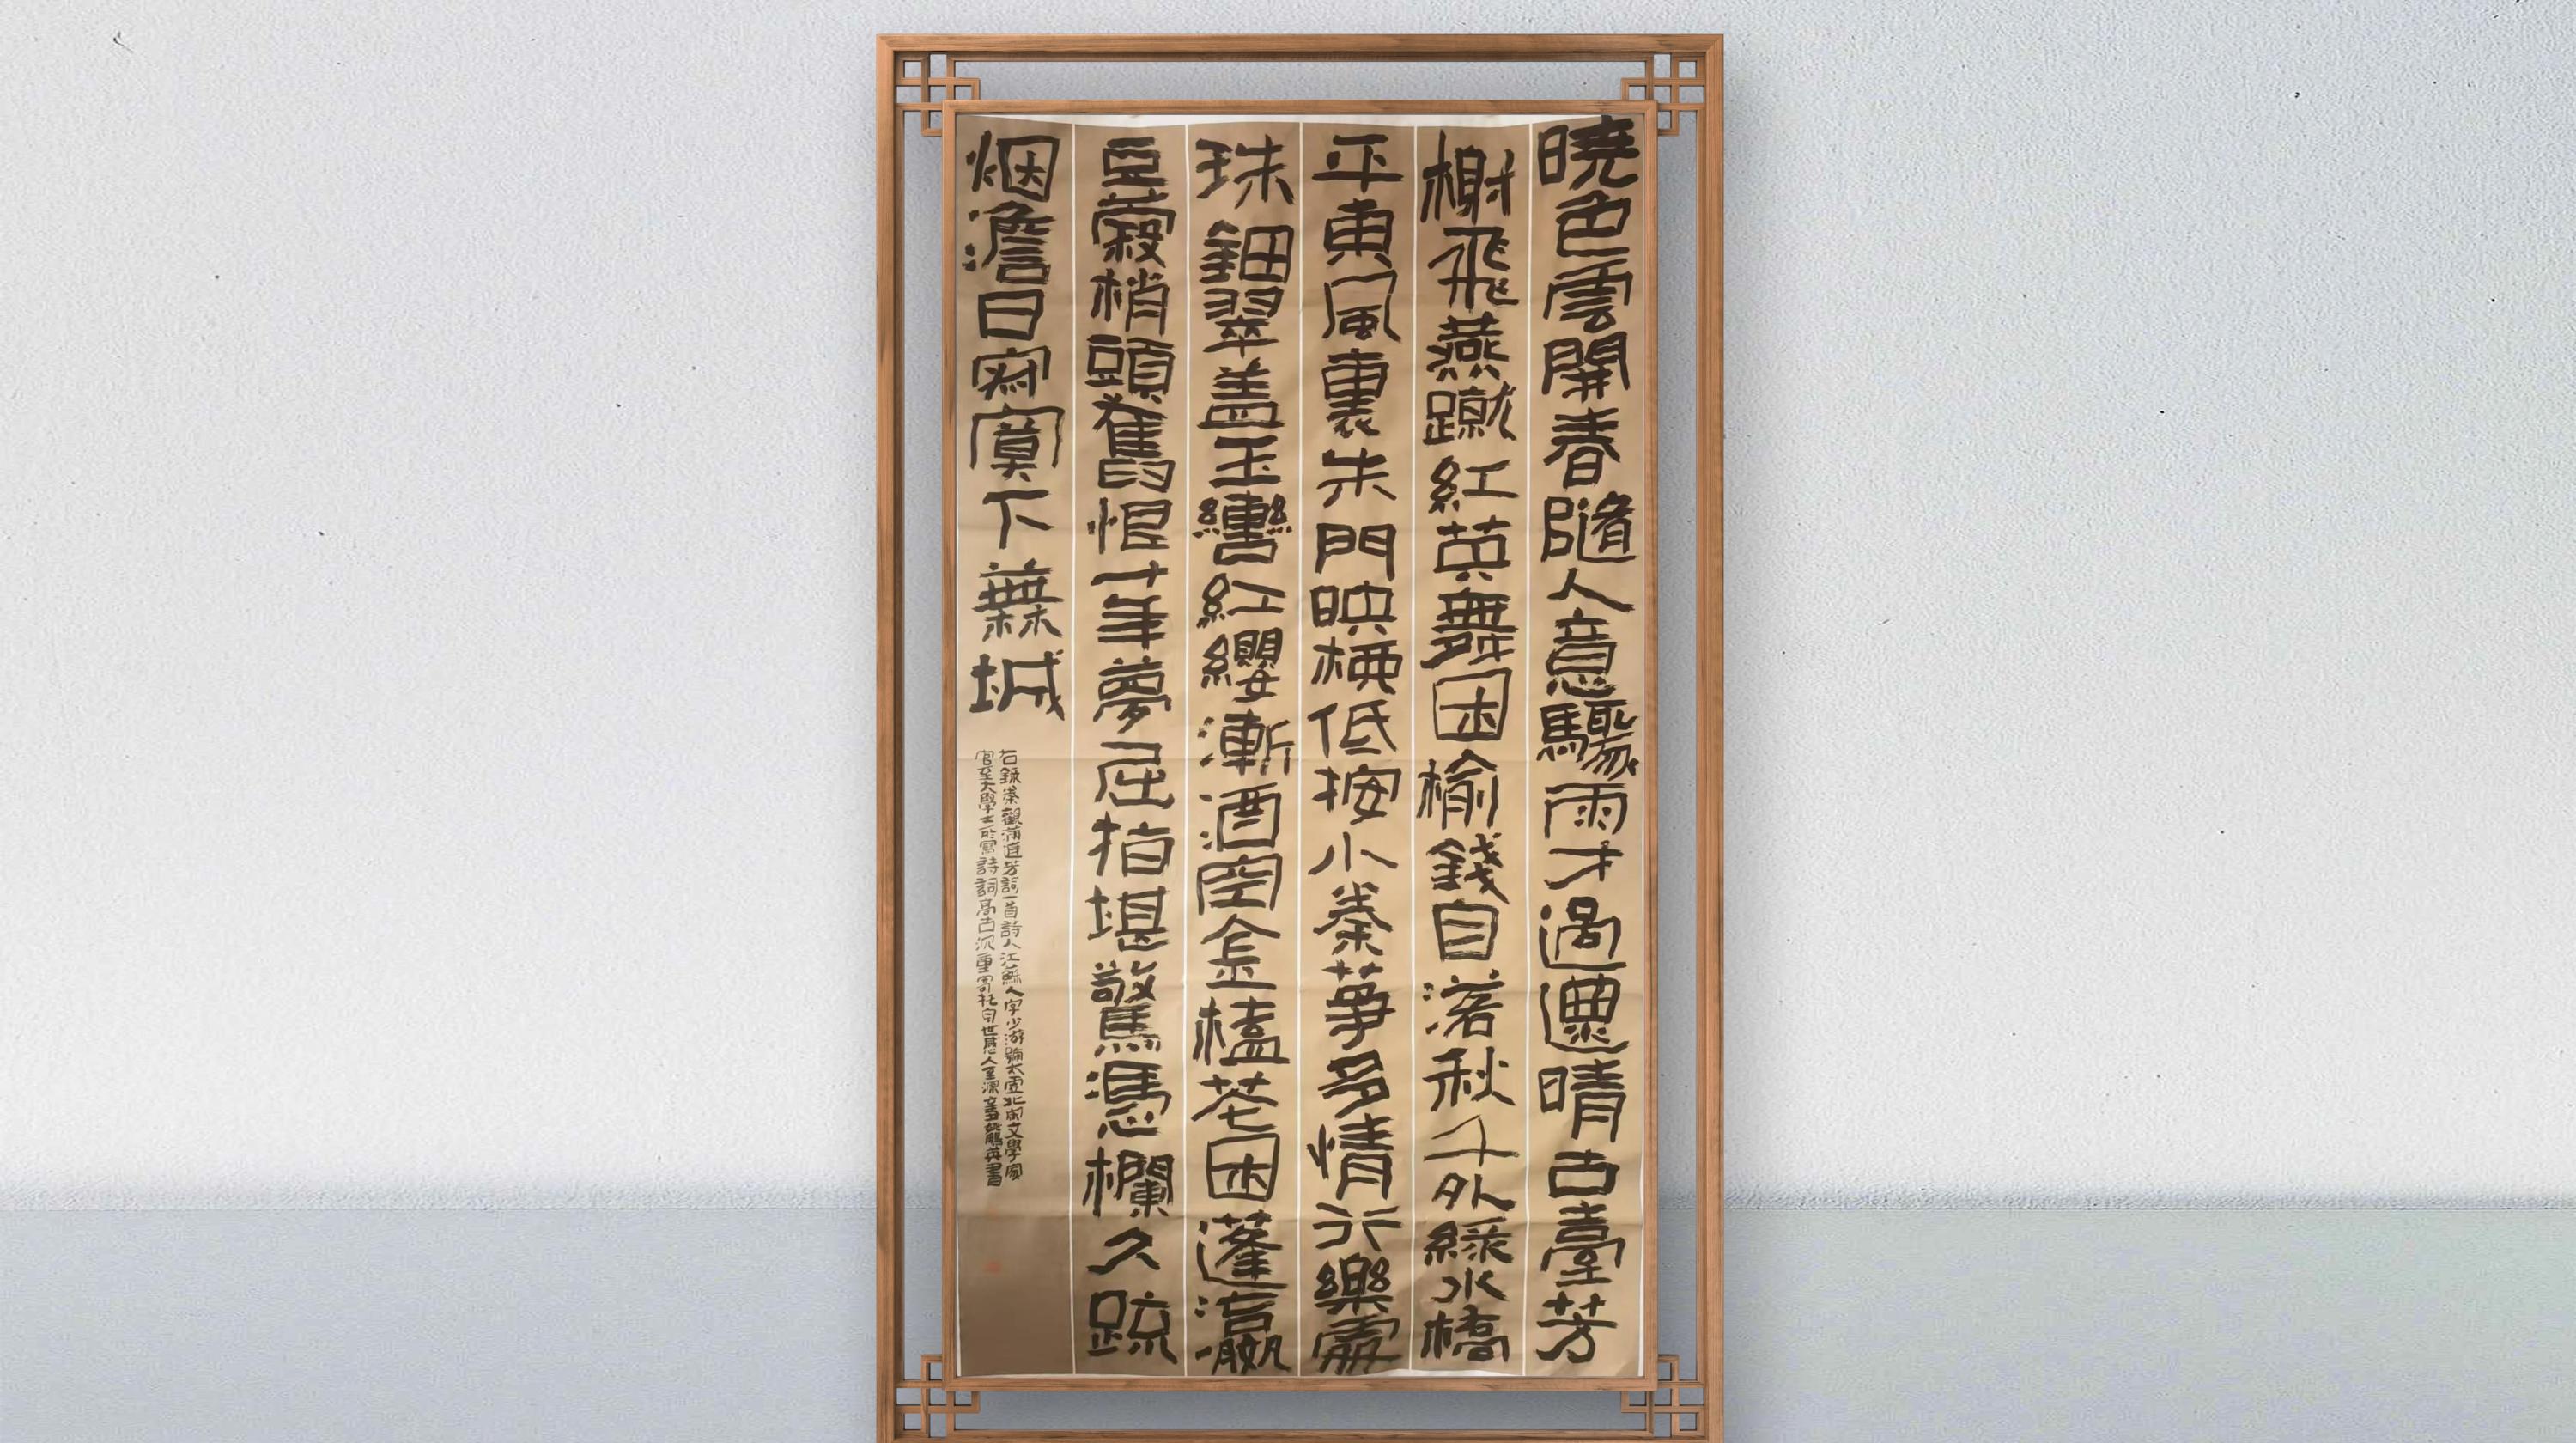 曉色雲開春隨人意驟雨才過還晴古臺芳
榭飛燕蹴紅英舞困榆錢自落秋千外綠水橋
平東風裏朱門映柳低按小秦箏多情行樂處
珠鈿翠盖玉轡紅纓漸酒空金榼花困蓬瀛
豆蔻梢頭舊恨十年夢屈指堪驚憑欄久疏
烟澹日寂寞下蕪城
右錄秦觀滿庭芳詞一首詩人江蘇人字少游號太虛北宋文學家
官至太學士所寫詩詞高古沉重寄托身世感人至深辛丑鵬英書